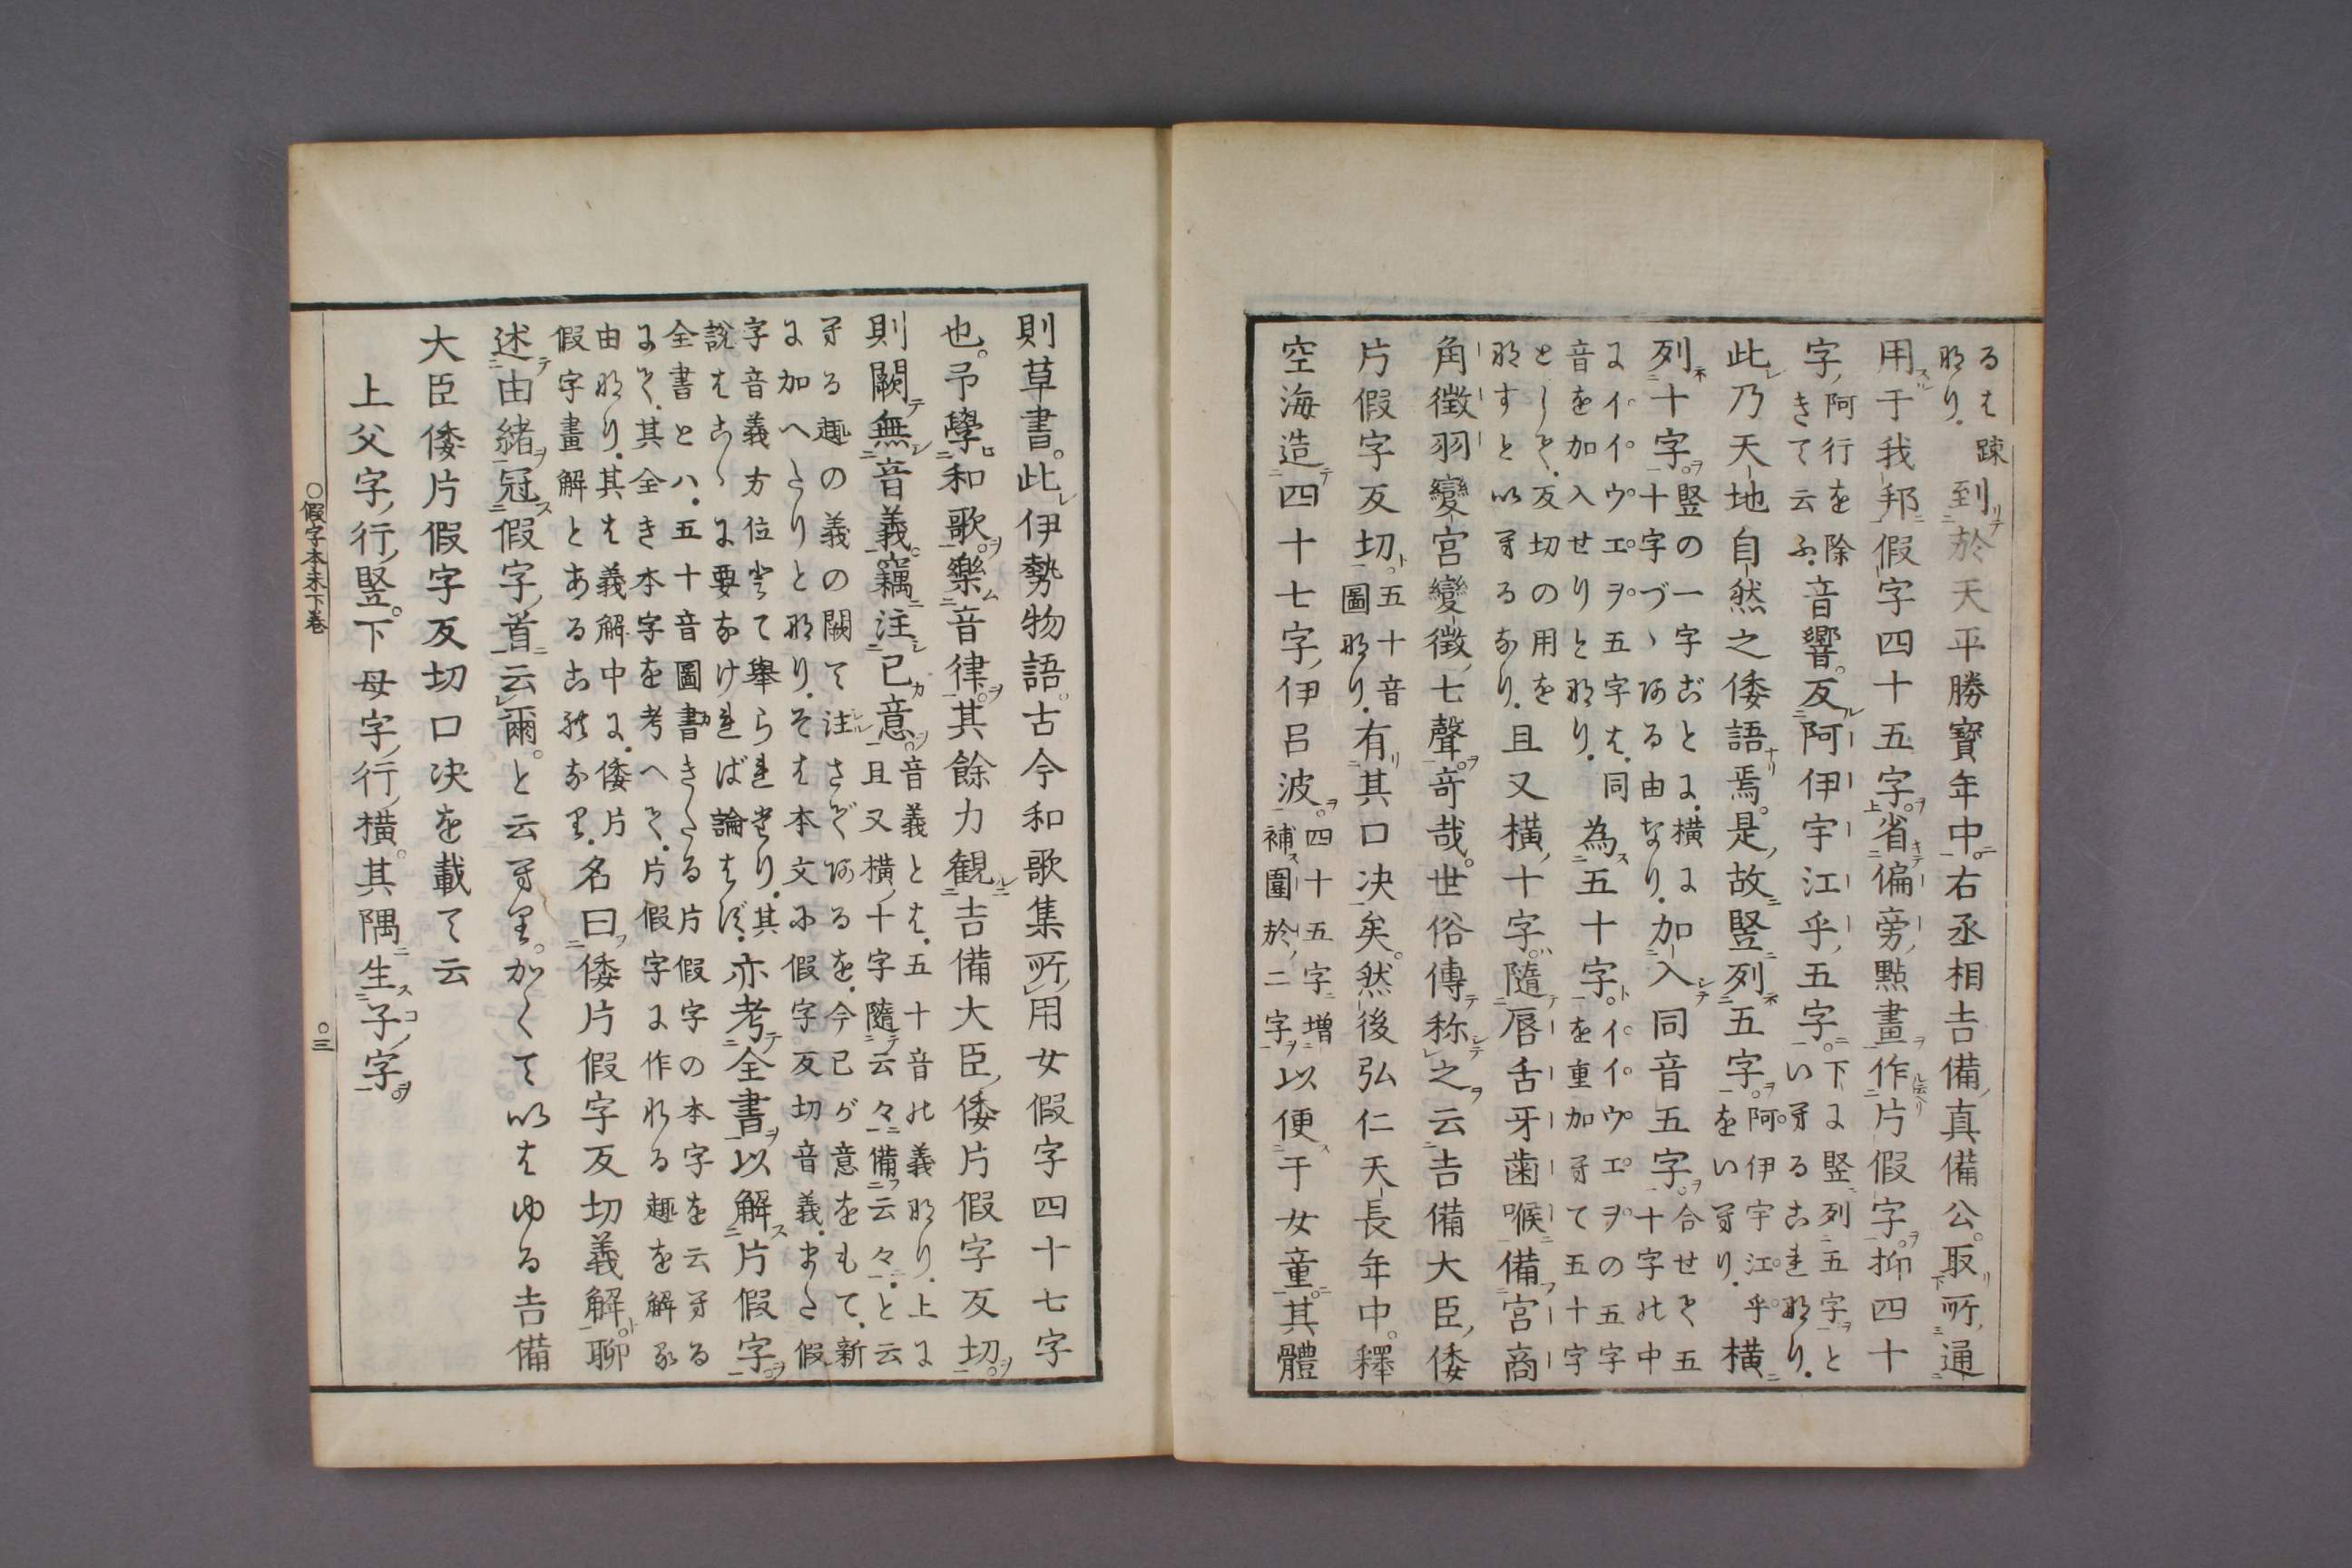 るは疎
なり。到於天平勝寶年中。右丞相吉備真備公。取所通
用于我邦假字四十五字。省偏旁點畫作片假字。抑四十
字、阿行を除きて云ふ。音響。反阿伊宇江乎五字。下に竪列五字といへるこれなり。
此乃天地自然之倭語焉。是故竪列五字。阿伊宇江乎をいへり。横
列十字。竪の一字ごとに横に十字づゝある由なり。加入同音五字。合せて五十字の中
にイイウエヲ五字は同音を加入せりとなり。為五十字。イイウエヲの五字を重加へて五十字
として、反切の用をなすといへるなり。且又横十字。隨唇舌牙歯喉備宮商
角徴羽變宮變徴七聲。奇哉。世俗傳称之云吉備大臣倭
片假字反切。五十音圖なり。有其口决矣。然後弘仁天長年中。釋
空海造四十七字伊呂波。四十五字増補圍於二字以便于女童。其體
則草書。此伊勢物語。古今和歌集所用女假字四十七字
也。予學和歌。樂音律。其餘力観吉備大臣倭片假字反切。
則闕無音義。竊注己意。音義とは、五十音の義なり。上に且又横十字隨云々備云々と云
へる趣の義の闕て注さぞあるを、今己が意をもて、新に加へたりとなり。そは本文に假字反切音義、また假
字音義方位とて舉られたり。其説はこゝに要なければ論はず。亦考全書以解片假字。
全書とハ、五十音圖書きたる片假字の本字を云へるにて、其全き本字を考へて、片假字に作れる趣を解る
由なり。其は義解中に、倭片假字畫解とあるこれなり。名曰倭片假字反切義解。聊
述由緒冠假字首云爾。と云へり。かくていはゆる吉備
大臣倭片假字反切口决を載て云
上父字行竪。下母字行横。其隅生子字。
○假字本末下巻
○三